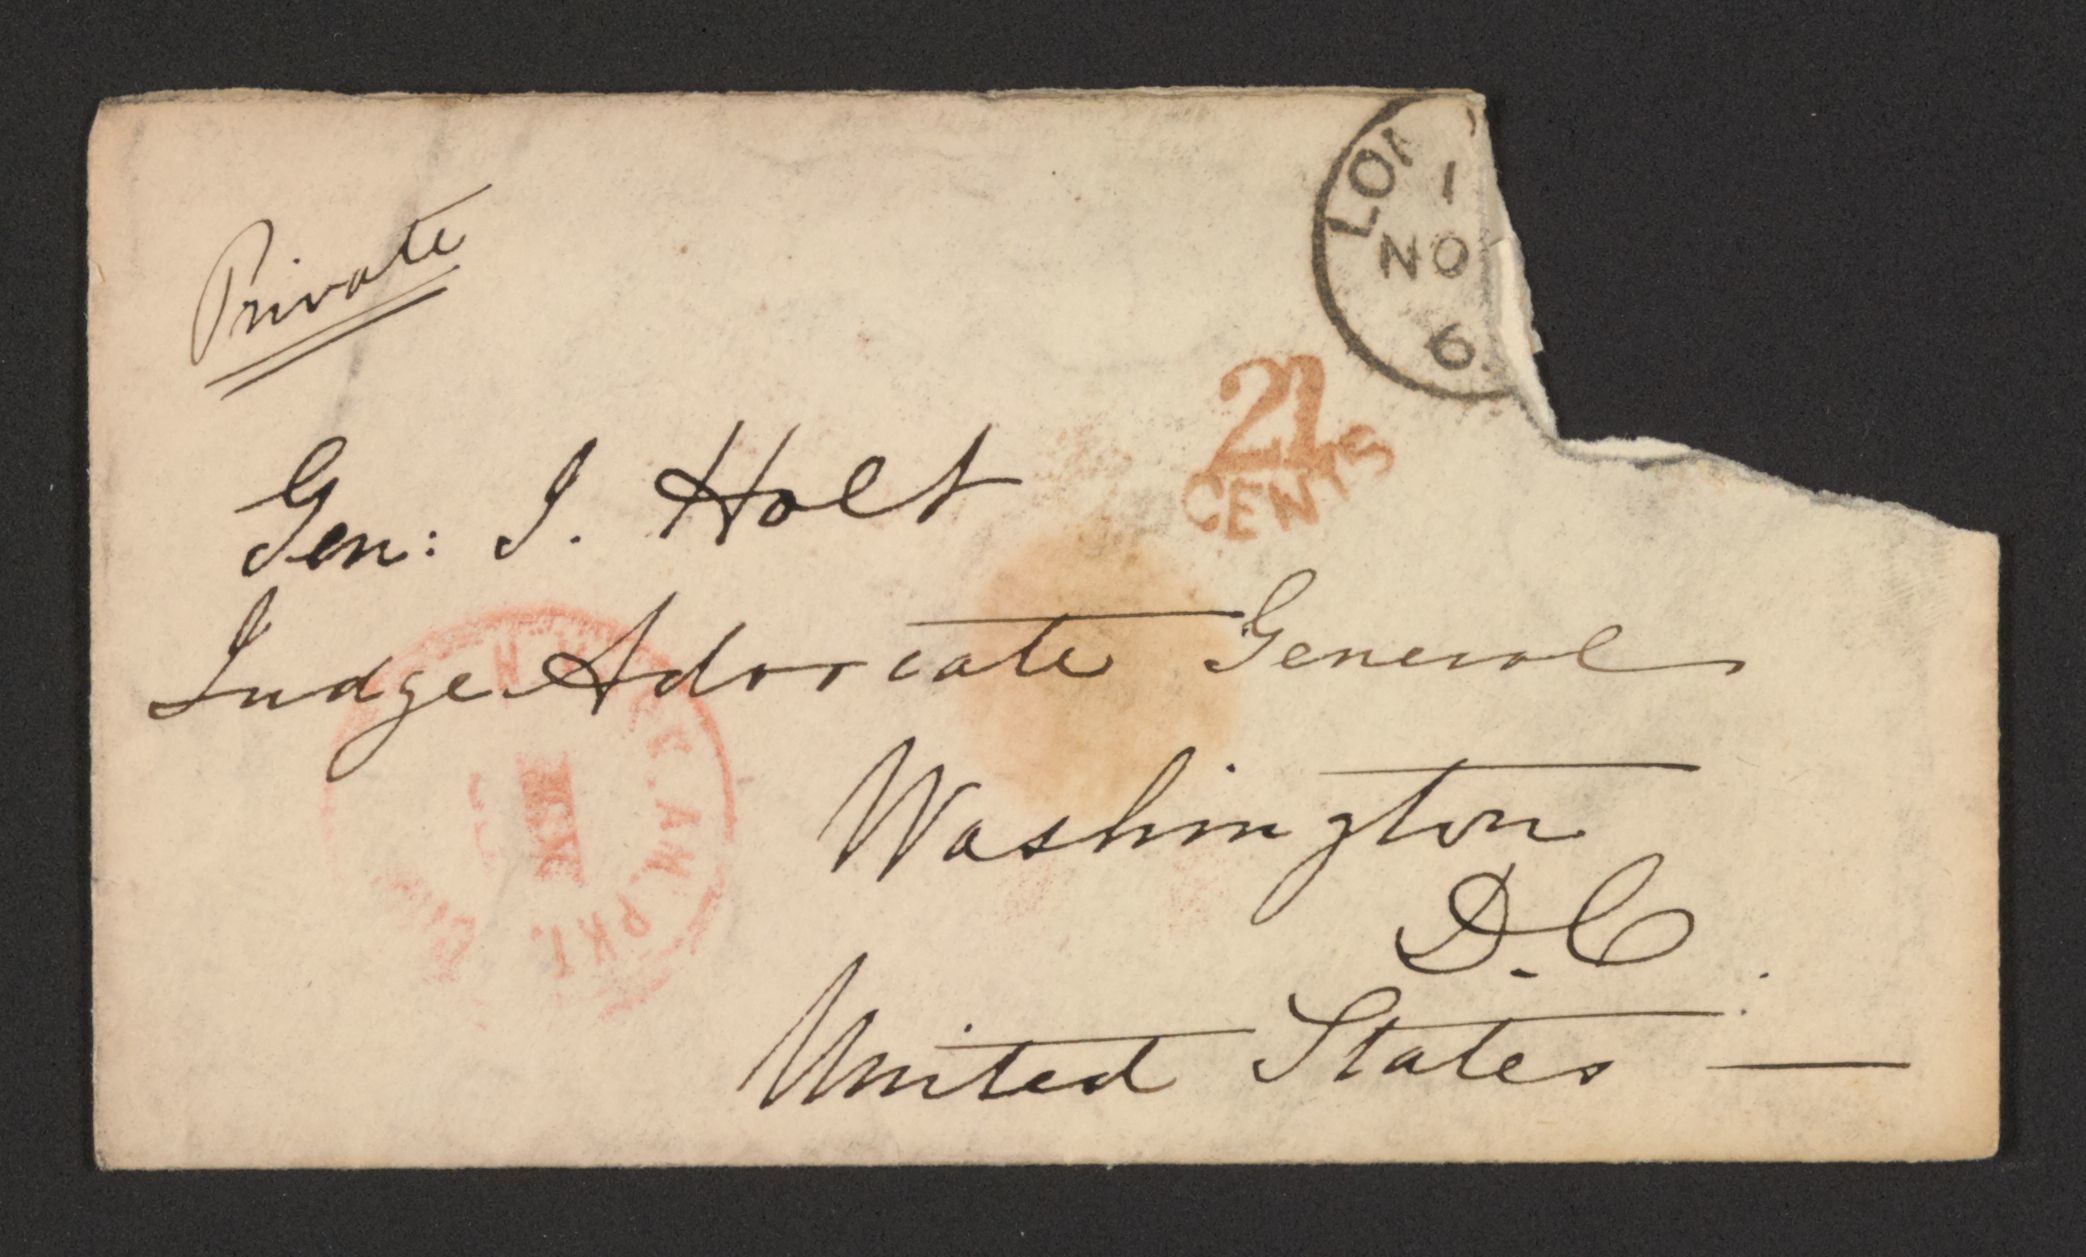 Private
LON
1
NO
6
21
CENTS
Gen: J. Holt
Judge Advocate General
Washington
D.C.
United States —
N. AM. PKT.